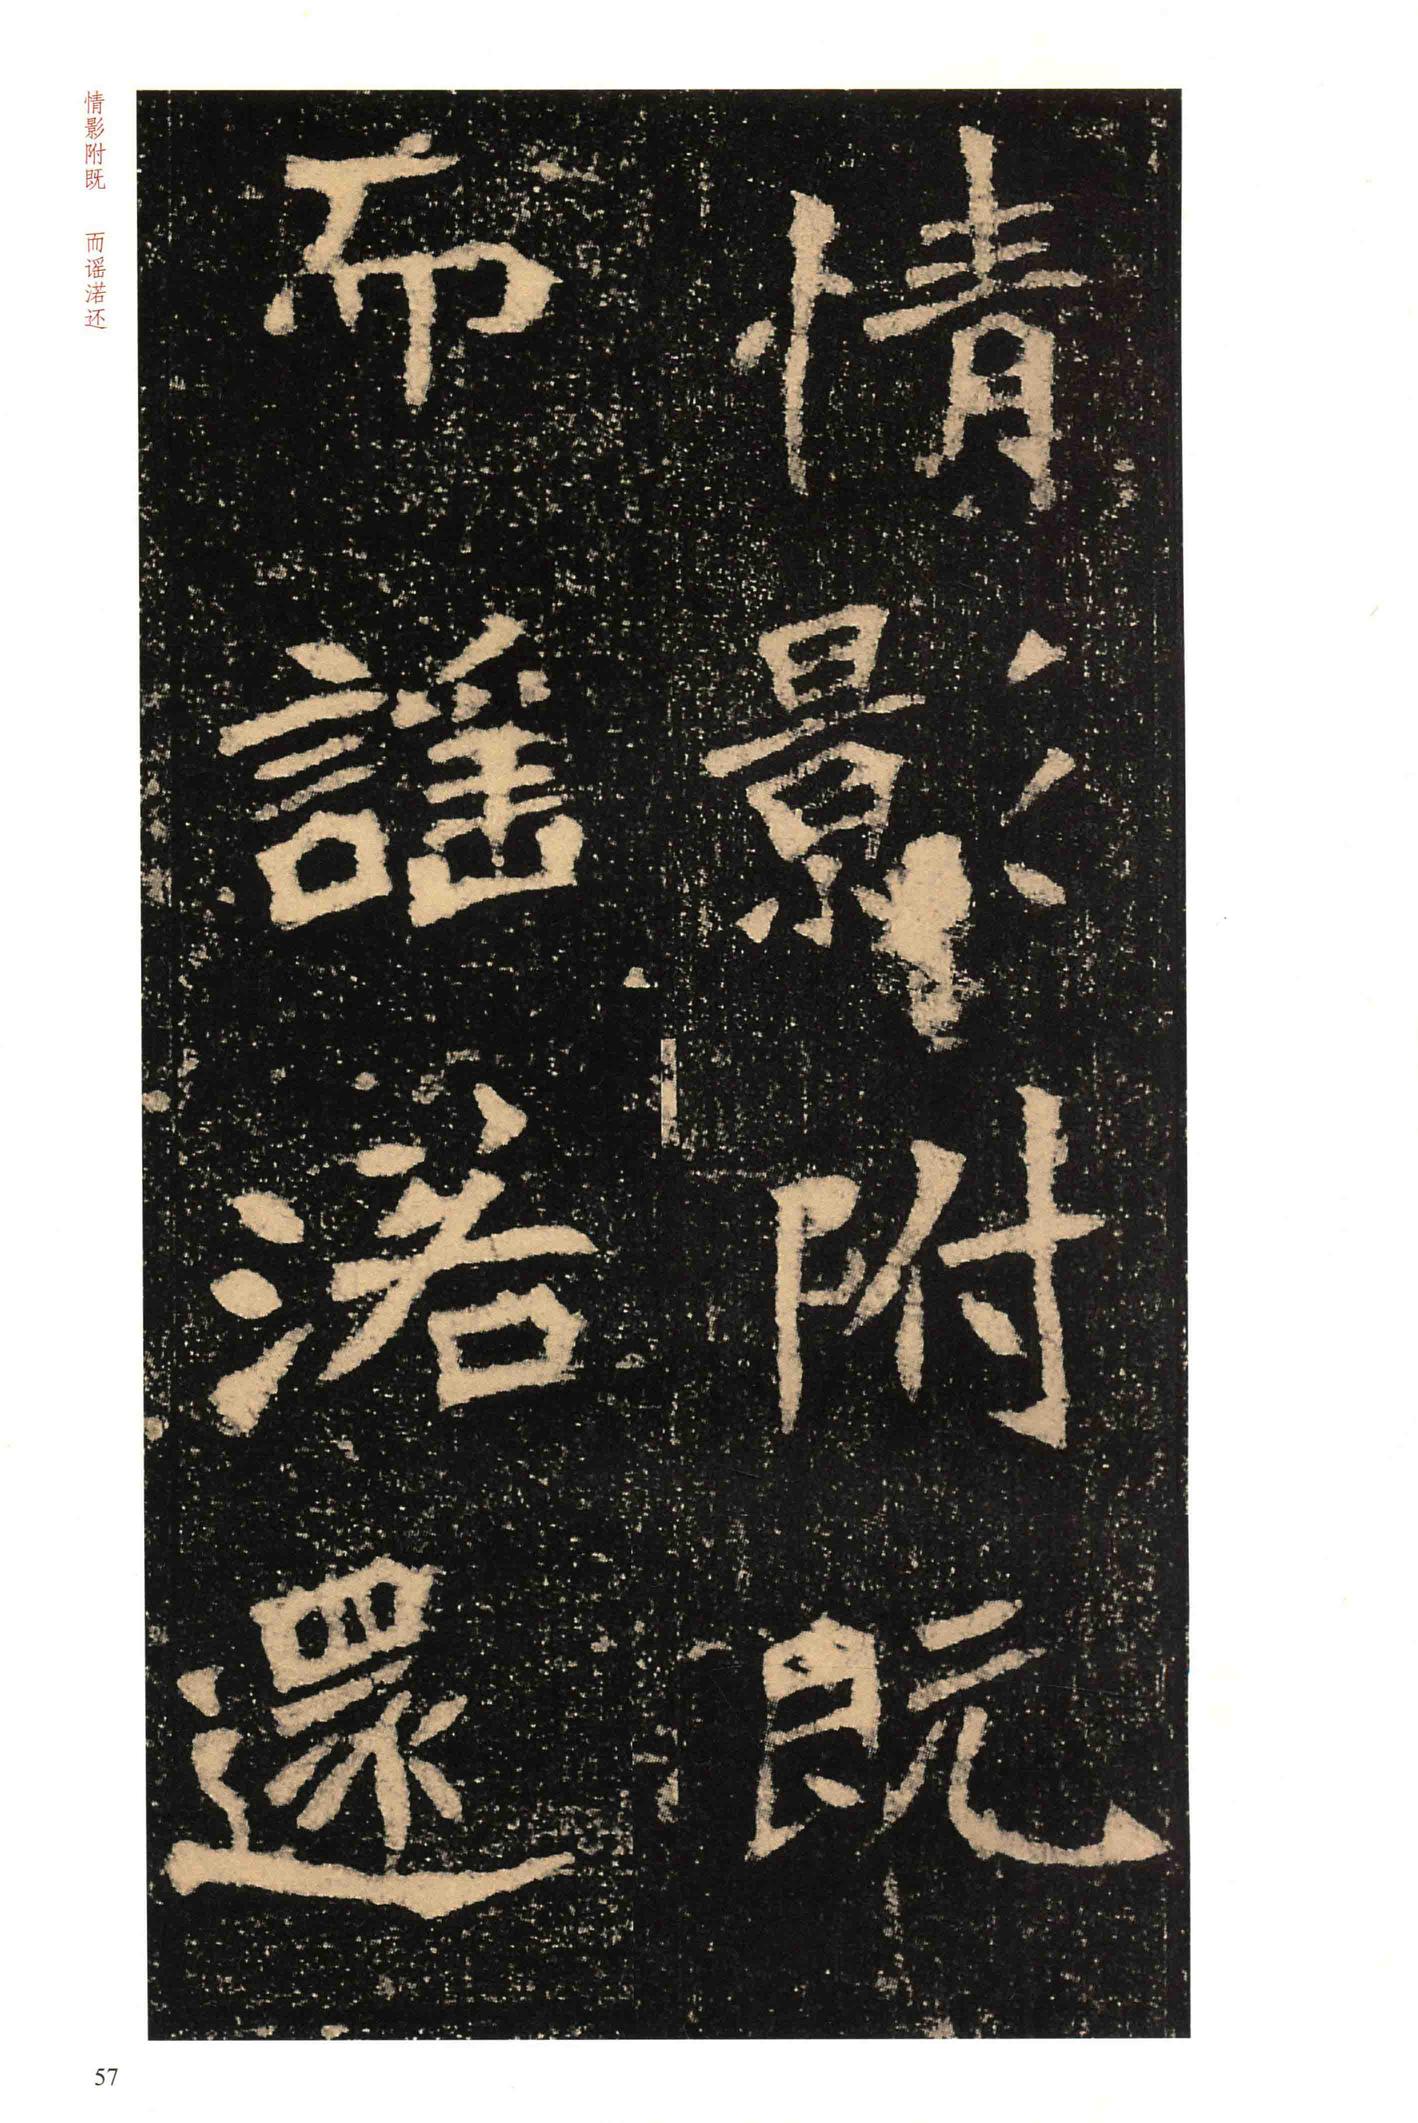 情影附既
而謡渃還
情影附既 而谣渃还
57